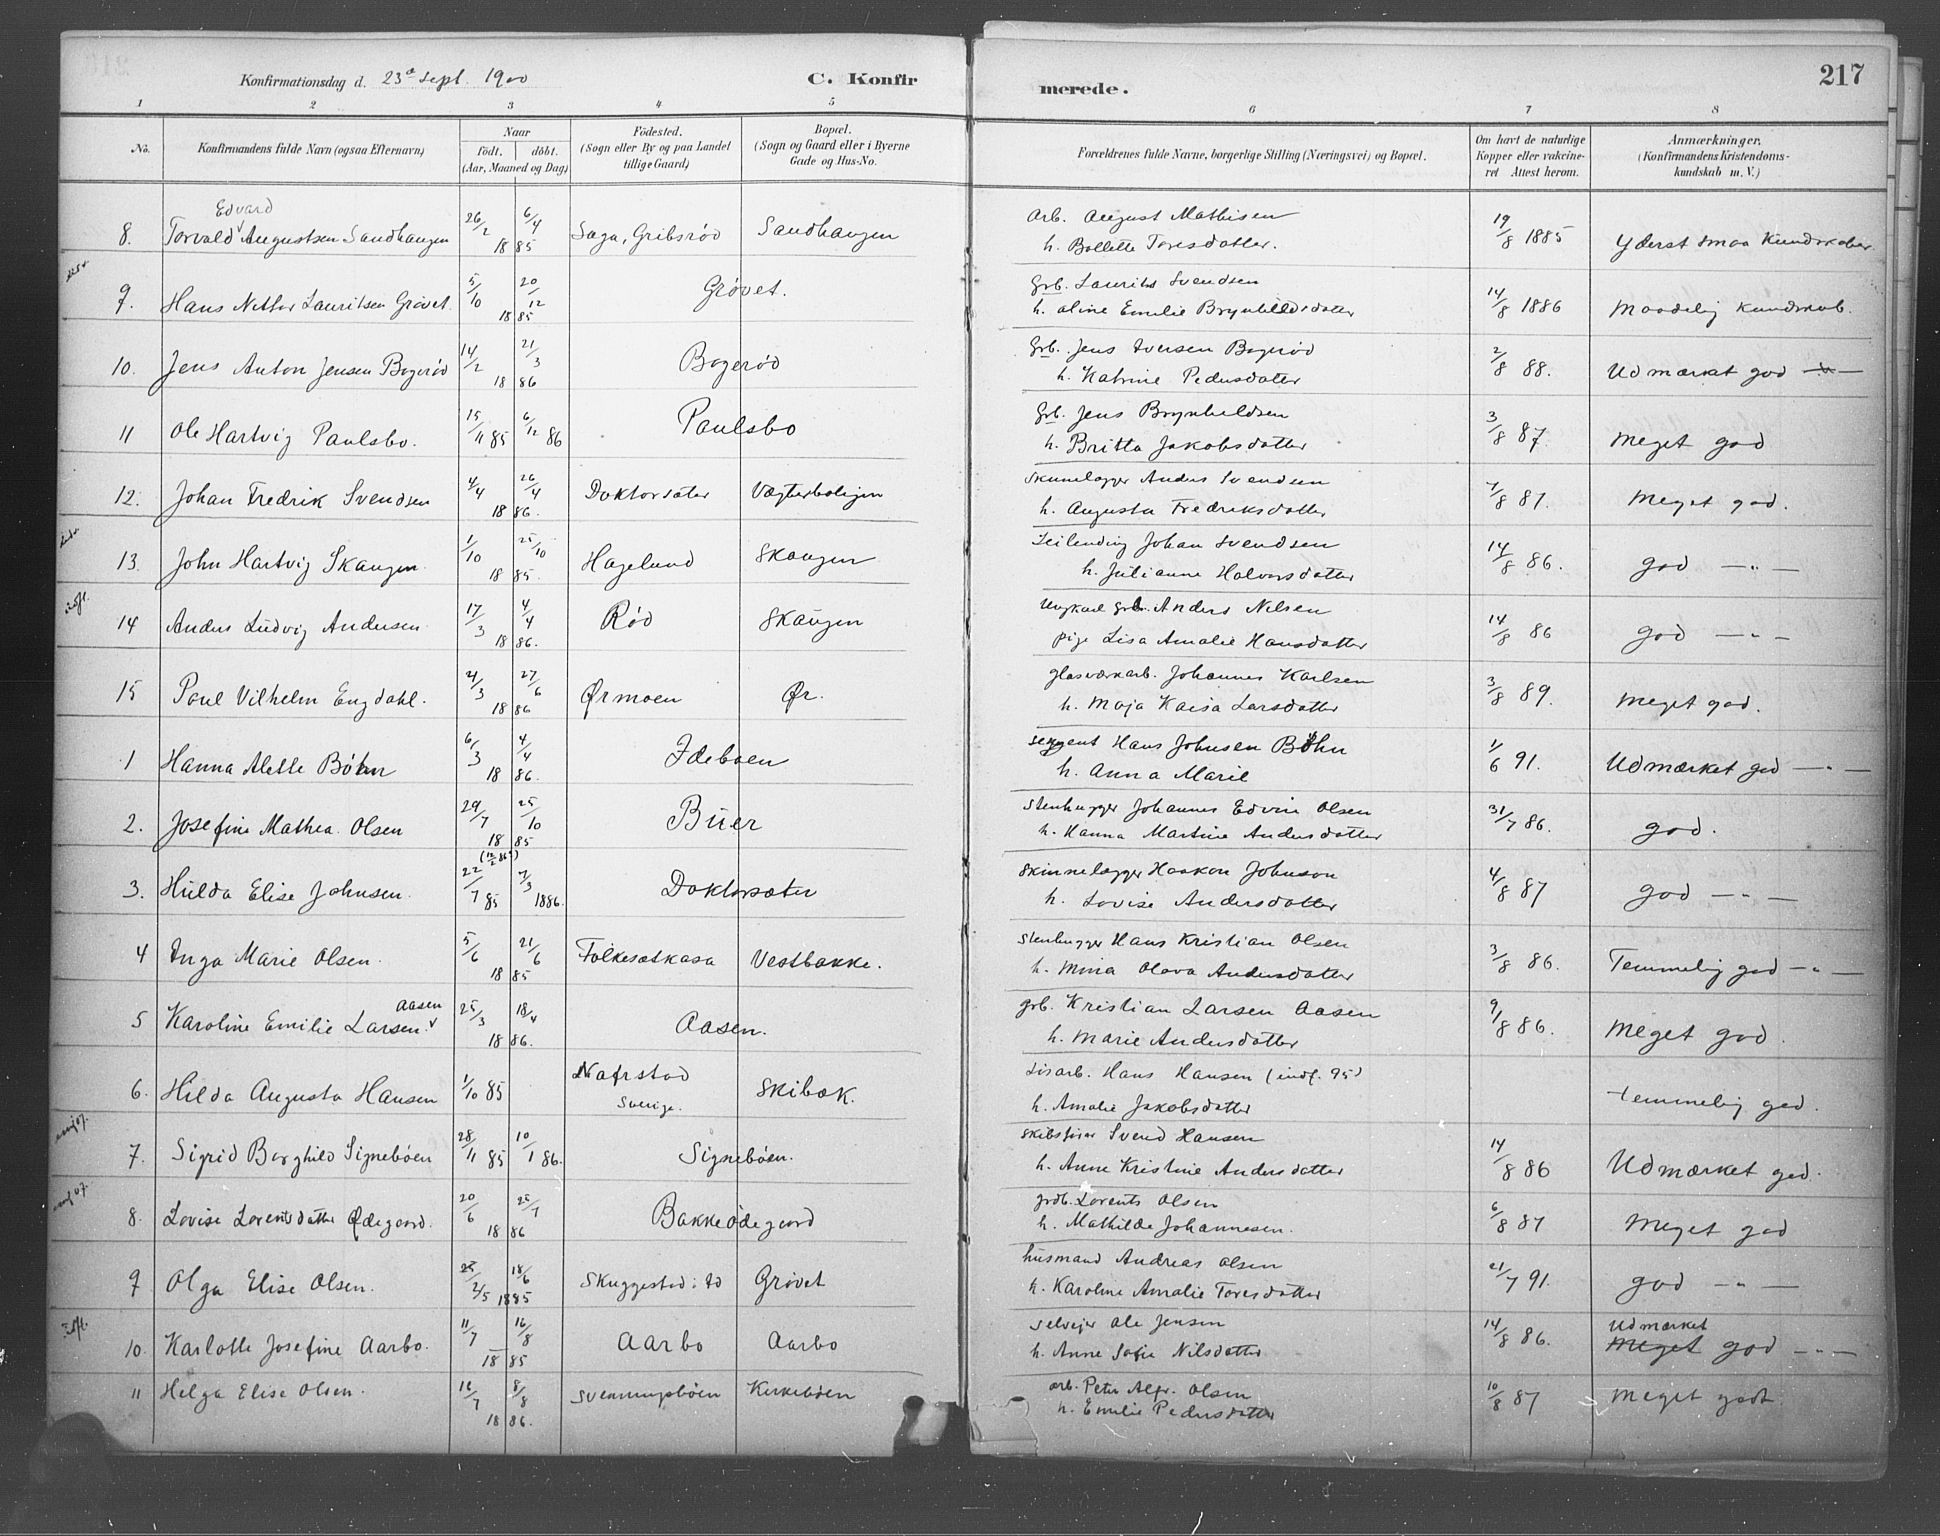 Konfirmationsdag d. 23de Sept. 1900 C. Konfirmerede. 217
1 2 3 4 5 6 7 8
No. Konfirmandens fulde Navn (ogsaa Efternavn) Naar født. døbt. (Aar, Maaned og Dag) Födested. (Sogn eller By og paa Landet tillige Gaard) Bopæl. (Sogn og Gaard eller i Byerne Gade og Hus-No. Forældrenes fulde Navne, borgerlige Stilling (Næringsvei) og Bopæl. Om havt de naturlige Kopper eller vakcineret Attest herom. Anmærkninger. (Konfirmandens Kristendomskundskab m. V.)
Edvard
8. Torvald Augustsen Sandhaugen 26/2 6/4 1885 Saga, Gribsrød Sandhaugen Arb. August Mathisen
h. Bollette Toresdatter. 19/8 1885 Yderst smaa Kundskaber
9. Hans Lauritsen Grövet. 5/10 20/12 1885 Grövet. Grb. Laurits Svendsen
h. Aline Emilie Brynhildsdatter 14/8 1886 Maadelig kundskab.
10. Jens Anton Jensen Bogeröd 14/2 21/3 1886 Bogeröd Grb. Jens Iversen Bogeröd
h. Katrine Pedersdatter 2/8 88. Udmærket god
11 Ole Hartvig Paulsbo. 15/11 85 6/12 86 Paulsbo Grb. Jens Brynhildsen
h. Britta Jakobsdatter 3/8 87. Meget god
12. Johan Fredrik Svendsen 4/4 26/4 1886. Doktorsæter Vægterboligen Skinnelægger Anders Svendsen
h. Augusta Fredriksdatter 87. Meget god.
13. John Hartvig Skaugen. 1/10 25/10 1885. Hagelund Skaugen Johan Svendsen
h. Julianne Halvorsdatter 14/8 86. god — " —
14 Anders Ludvig Andersen. 17/3 4/4 1886. Rød Skaugen Ungkarl grb. Anders Nilsen
pige Lisa Amalie Hansdatter 14/8 86 god — " —
15 Paul Vilhelm Engdahl. 21/3 27/6 1886 Ørmoen Ør. glasværkarb. Johannes Karlsen
h. Maja Kaisa Larsdatter 3/8 89. Meget god.
1 Hanna Alette Böhn 6/3 4/4 1886. Ideboen sergent Hans Johnsen Böhn
h. Anna Marie 1/6 91. Udmærket god — " —
2. Josefine Mathea Olsen 29/7 25/10 1885 Buer Stenhugger Johannes Edvin Olsen
h. Hanna Martine Andersdatter 31/7 86. god.
3. Hilda Elise Johnsen. 22/7 85 7/3 1886. Doktorsæter Skinnelægger Haakon Johnson
h. Lovise Andersdatter 4/8 87 god — " —
4 Inga Marie Olsen. 5/6 21/6 1885 Folkesætkasa Vestbakke. Stenhugger Hans Kristian Olsen
h. Mina Olava Andersdatter 3/8 86. Temmelig god — " —
Aasen
5 Karoline Emilie Larsen. 25/3 18/4 1886. Aasen. grb. Kristian Larsen Aasen
h. Marie Andersdatter 9/8 86. Meget god.
6. Hilda Augusta Hansen 1/10 85 Nafrstad Sverige. Skibæk. Hans Hansen (indf. 95)
h. Amalie Jakobsdatter temmelig god.
7. Sigrid Borghild Signebøen 28/11 85 10/1 86. Signebøen. Skibsfører Svend Hansen
h. Anne Kristine Andersdatter 14/8 86 Udmærket god.
8. Lovise Lorentsdatter Ødegaard. 20/6 25/7 1886 Bakkeødegaard grdb. Lorents Olsen
h. Mathilde Johannesen. 6/8 87 Meget god
9 Olga Elise Olsen. 25/5 18/6 1885 Skuggestad Grövet husmand Andreas Olsen
h. Karoline Amalie Toresdatter 21/7 91. god — " —
10. Karlotte Josefine Aarbo. 11/7 16/8 1885 Aarbo Aarbo Selveier Ole Jensen
h. Anne Sofie Nilsdatter 14/8 86. Udmærket Meget god — " —
11 Helga Elise Olsen. 12/7 8/8 1886. Svenningsbøen Kirkebøen arb. Peter Alfr. Olsen
h. Emilie Pedersdatter 10/8 87 Meget godt